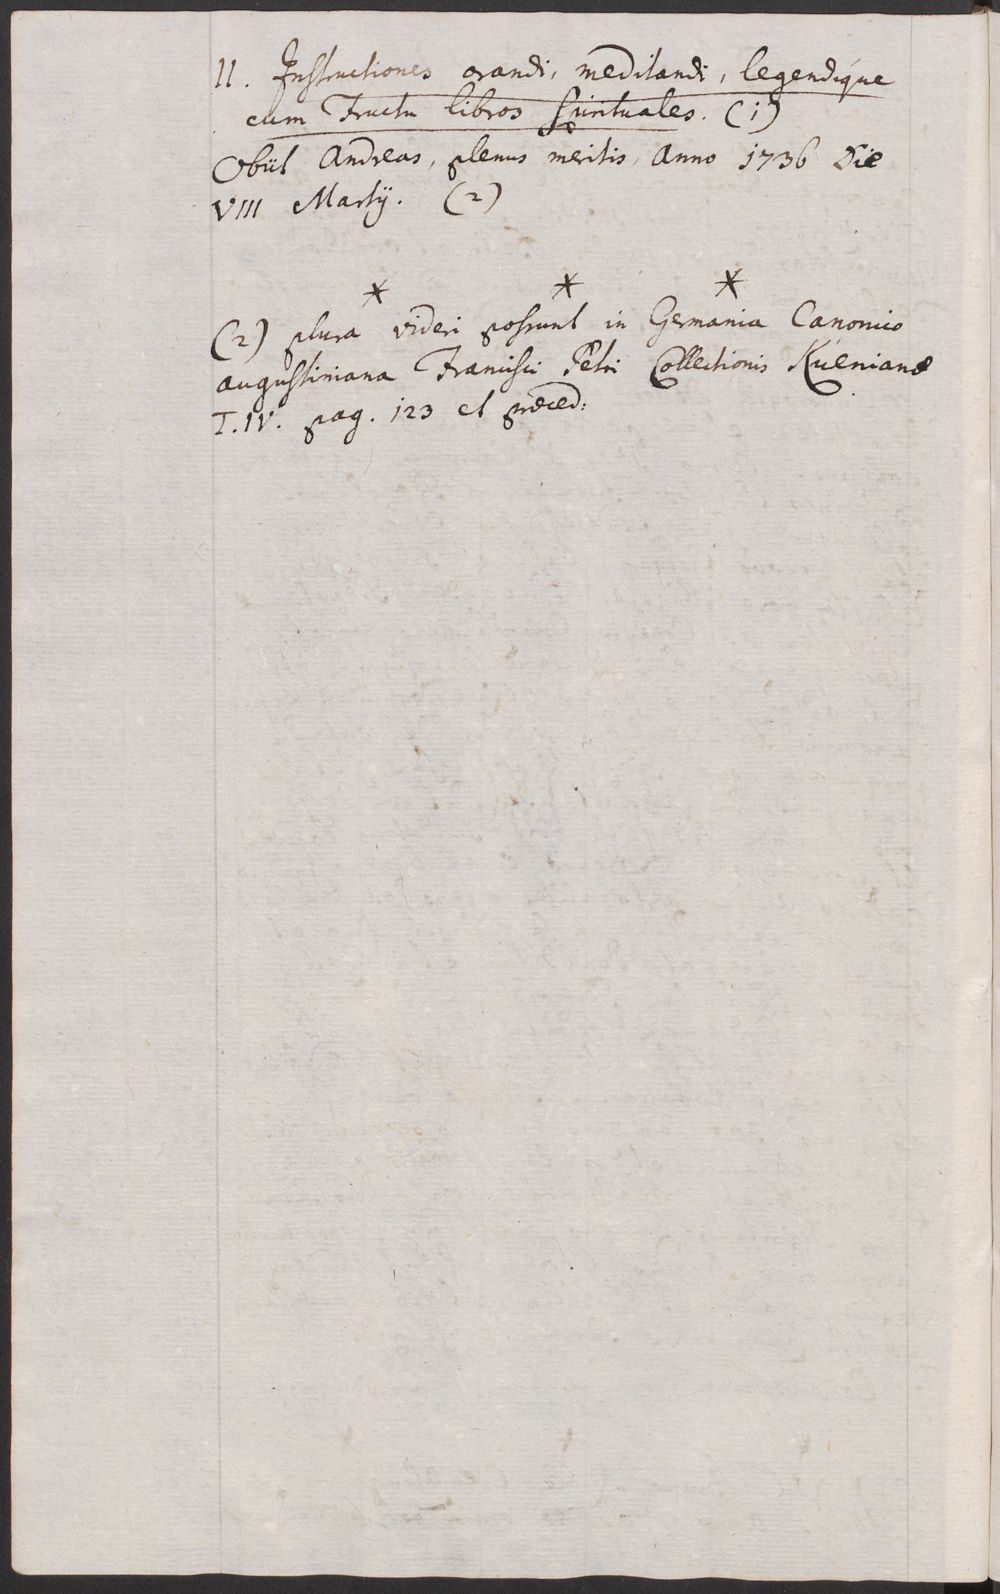 11. Instructiones orandi, meditandi, legendique
cum Fructu libros spirituales. (1)
Obiit Andreas, plenus meritis, Anno 1736 Die
VIII Martij. (2)
* * *
(2) plura videri possunt in Germania Canonico
augustiniana Francisci Petri Collectionis Kuenianæ
T. IV. pag. 123 et præced: